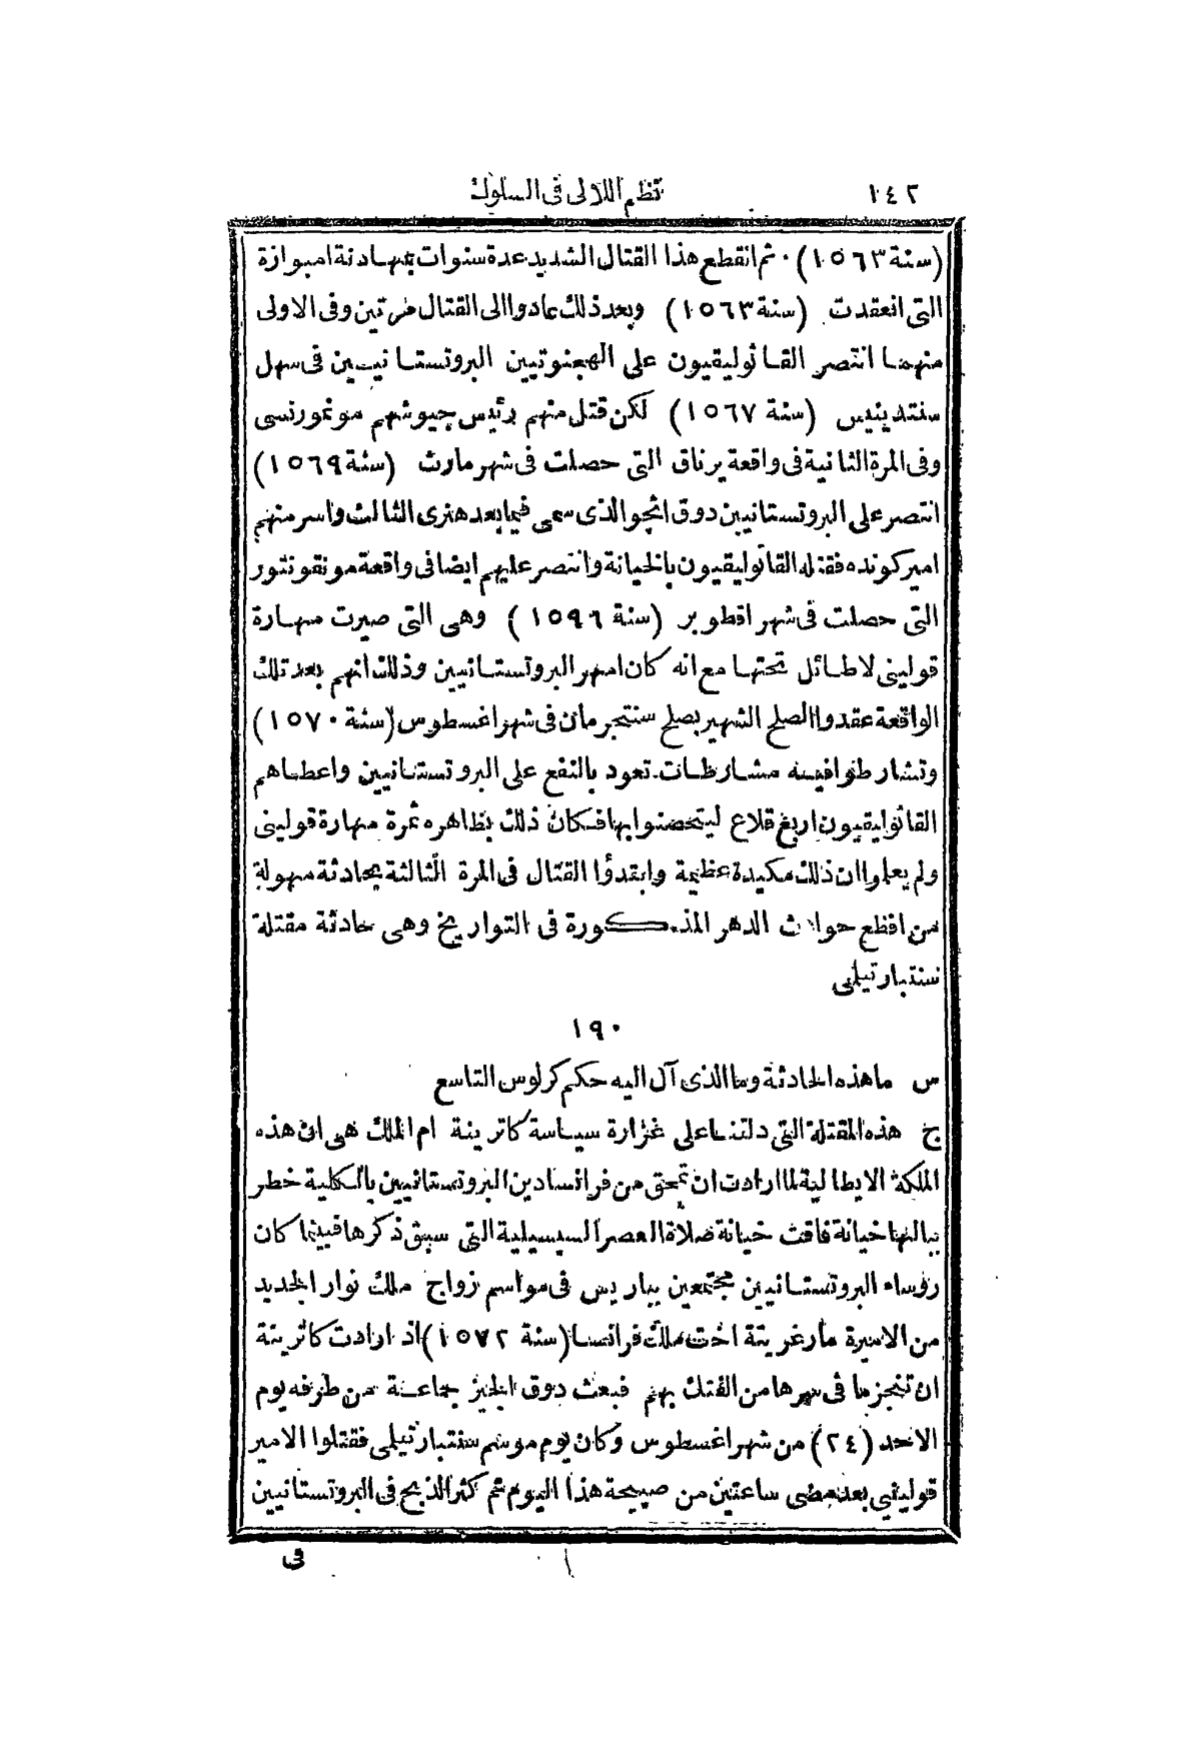 ١٤٢ نظم اللآلى فى السلوك
(سنة ١٥٦٣) . ثم انقطع هذا القتال الشديد عدة سنوات بمهادنة امبوازة
التى انعقدت (سنة ١٥٦٣) وبعد ذلك عادوا الى القتال مرتين وفى الاولى
منهما انتصر القاثوليقيون على الهجنوتيين البروتستانيين فى سهل
سنتدينيس (سنة ١٥٦٧) لكن قتل منهم رئيس جيوشهم مونمورنسى
وفى المرة الثانية فى واقعة يرناق التى حصلت فى شهر مارث (سنة ١٥٦٩)
انتصر على البروتستانيين دوق انجو الذى سمى فيما بعد هنرى الثالث واسر منهم
امير كونده فقتله القاثوليقيون بالخيانة وانتصر عليهم ايضا فى واقعة مونقونتور
التى حصلت فى شهر اقطوبر (سنة ١٥٩٦) وهى التى صيرت مهارة
قولينى لا طائل تحتها مع انه كان امهر البروتستانيين وذلك انهم بعد تلك
الواقعة عقدوا الصلح الشهير بصلح سنتجرمان فى شهر اغسطوس (سنة ١٥٧٠)
وتشارطوا فيه مشارطات تعود بالنفع على البروتستانيين واعطاهم
القاثوليقيون اربع قلاع ليتحصنوا بها فكان ذلك بظاهره ثمرة مهارة قولينى
ولم يعلوا ان ذلك مكيدة عظيمة وابتدؤا القتال فى المرة الثالثة بحادثة مهولة
من افظع حوادث الدهر المذكورة فى التواريخ وهى حادثة مقتلة
سنتبارتيلى
١٩٠
س ما هذه الحادثة وما الذى آل اليه حكم كرلوس التاسع
ج هذه المقتلة التى دلتنا على غزارة سياسة كاترينة ام الملك هى ان هذه
الملكة الايطالية لما ارادت ان تمحق من فرانسا دين البروتستانيين بالكلية خطر
ببالها خيانة فاقت خيانة صلاة العصر السيسيلية التى سبق ذكرها فبينما كان
رؤساء البروتستانيين مجتمعين بباريس فى مواسم زواج ملك نوار الجديد
من الاميرة مارغريتة اخت ملك فرانسا (سنة ١٥٧٢) اذ ارادت كاترينة
ان تنجز ما فى سرها من الفتك بهم فبعث دوق الجيز جماعة من طرفه يوم
الاحد (٢٤) من شهر اغسطوس وكان يوم موسم سنتبارتيلى فقتلوا الامير
قولينى بعد مضى ساعتين من صبيحة هذا اليوم ثم كثر الذبح فى البروتستانيين
فى